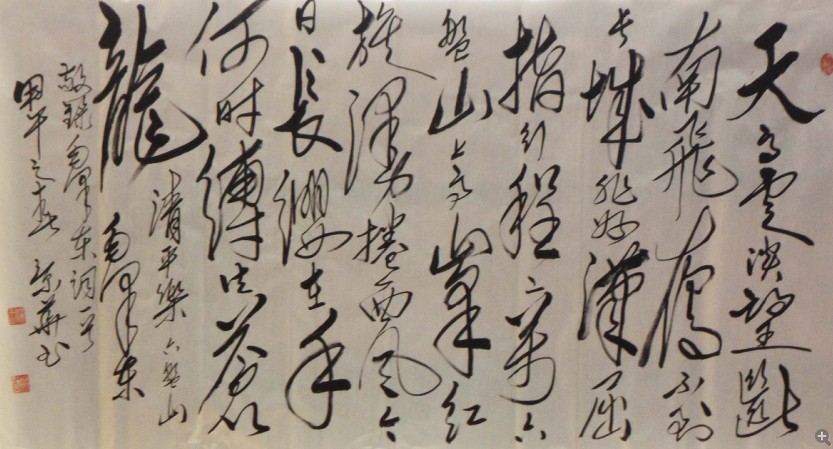 天高雲淡望斷
南飛雁不到
长城非好漢屈
指行程二萬六
盤山上高峯红
旗漫捲西风今
日長纓在手
何时縛住蒼
龍
清平樂六盤山
毛澤东
敬録毛澤东词一首
甲午之春